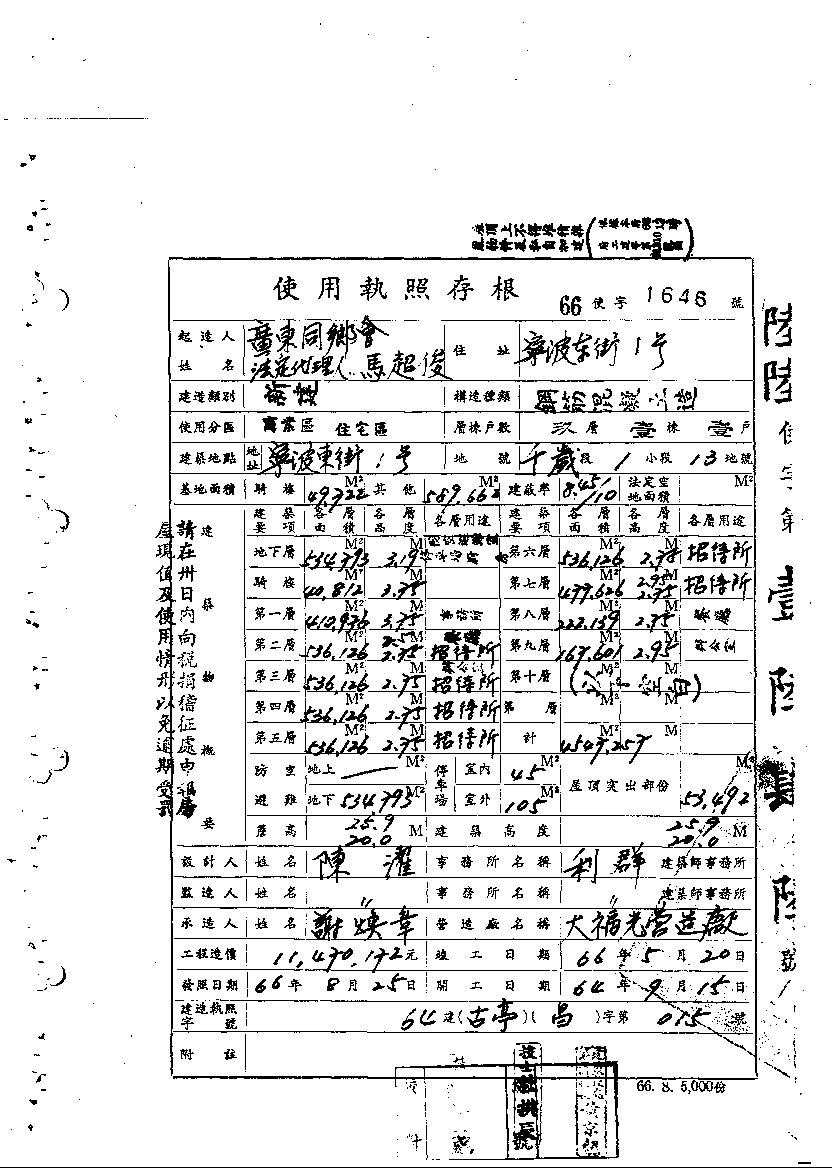 使用執照存根 66 使字 1646 號
起造人姓名 廣東同鄉會 法定代理人 馬超俊 住址 寧波東街1號
建造類別 新建 構造種類 鋼筋混凝土造
使用分區 商業區 住宅區 層棟戶數 玖層 壹棟 壹戶
建築地點 地址 寧波東街1號 地號 千歲段1小段13地號
基地面積 騎樓 49.722 M² 其他 589.662 M² 建蔽率 8.45/10 法定空地面積 M²
建築要項 各層面積 各層高度 各層用途 建築要項 各層面積 各層高度 各層用途
地下層 534.793 M² 3.19 M 第六層 536.126 M² 2.75 M 招待所
騎樓 40.812 M² 3.75 M 第七層 477.626 M² 2.95 2.75 M 招待所
第一層 410.936 M² 3.75 M 第八層 222.139 M² 2.75 M
第二層 536.126 M² 2.75 M 招待所 第九層 167.601 M² 2.95 M
第三層 536.126 M² 2.75 M 招待所 第十層 (以下空白)
第四層 536.126 M² 2.75 M 招待所 第 層 M² M
第五層 536.126 M² 2.75 M 招待所 計 4547.257 M²
建築物概要
防空避難 地上 — M² 停車場 室內 45 M² 屋頂突出部份 53.492 M²
地下 534.793 M² 室外 105 M²
簷高 25.9 20.0 M 建築高度 25.9 20.0 M
設計人 姓名 陳濯 事務所名稱 利群 建築師事務所
監造人 姓名 〃 事務所名稱 〃 建築師事務所
承造人 姓名 謝煥章 營造廠名稱 大福光營造廠
工程造價 11,470,172元 竣工日期 66年5月20日
發照日期 66年8月25日 開工日期 64年9月15日
建造執照字號 64建(古亭)(昌)字第015號
附註
66. 8. 5,000份
請在卅日內向稅捐稽征處申報房屋現值及使用情形以免逾期受罰
陸陸使字第壹陸
陸號